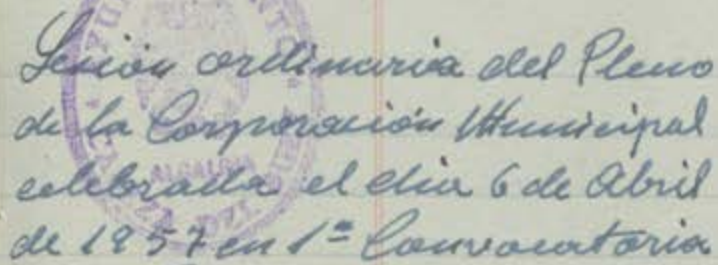 Sesión ordinaria del Pleno
de la Corporación Municipal
celebrada el dia 6 de Abril
de 1957 en 1ª Convocatoria
ALCALDIA